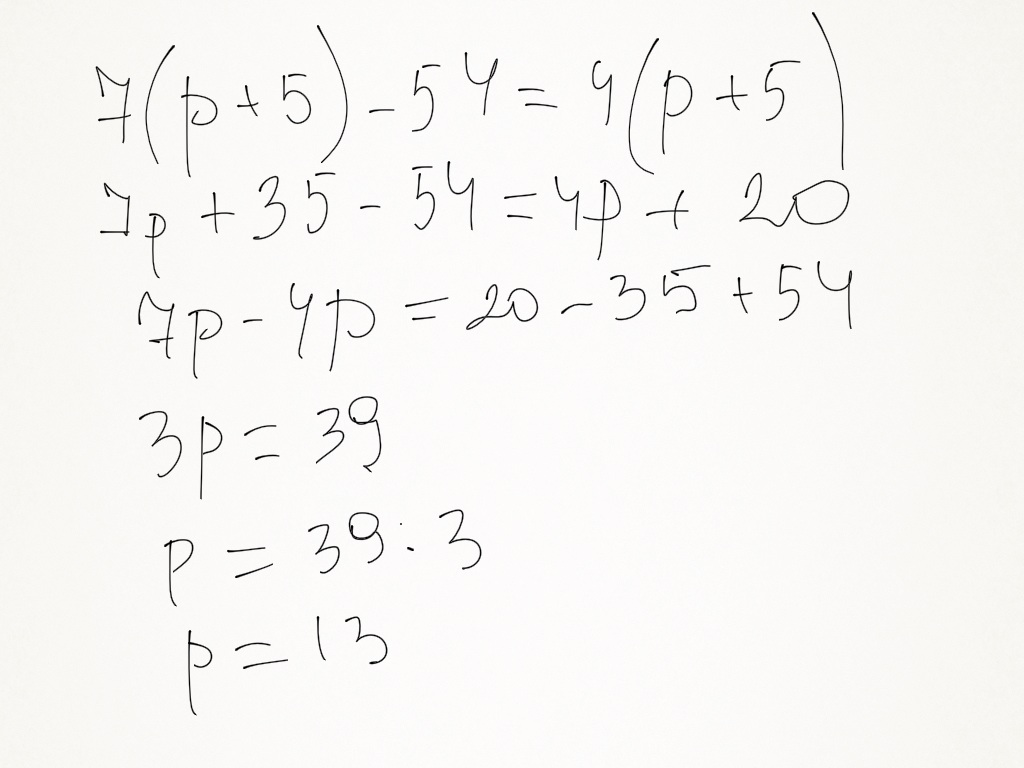 7(p+5)-54=4(p+5)
7p+35-54=4p+20
7p-4p=20-35+54
3p=39
p=39:3
p=13